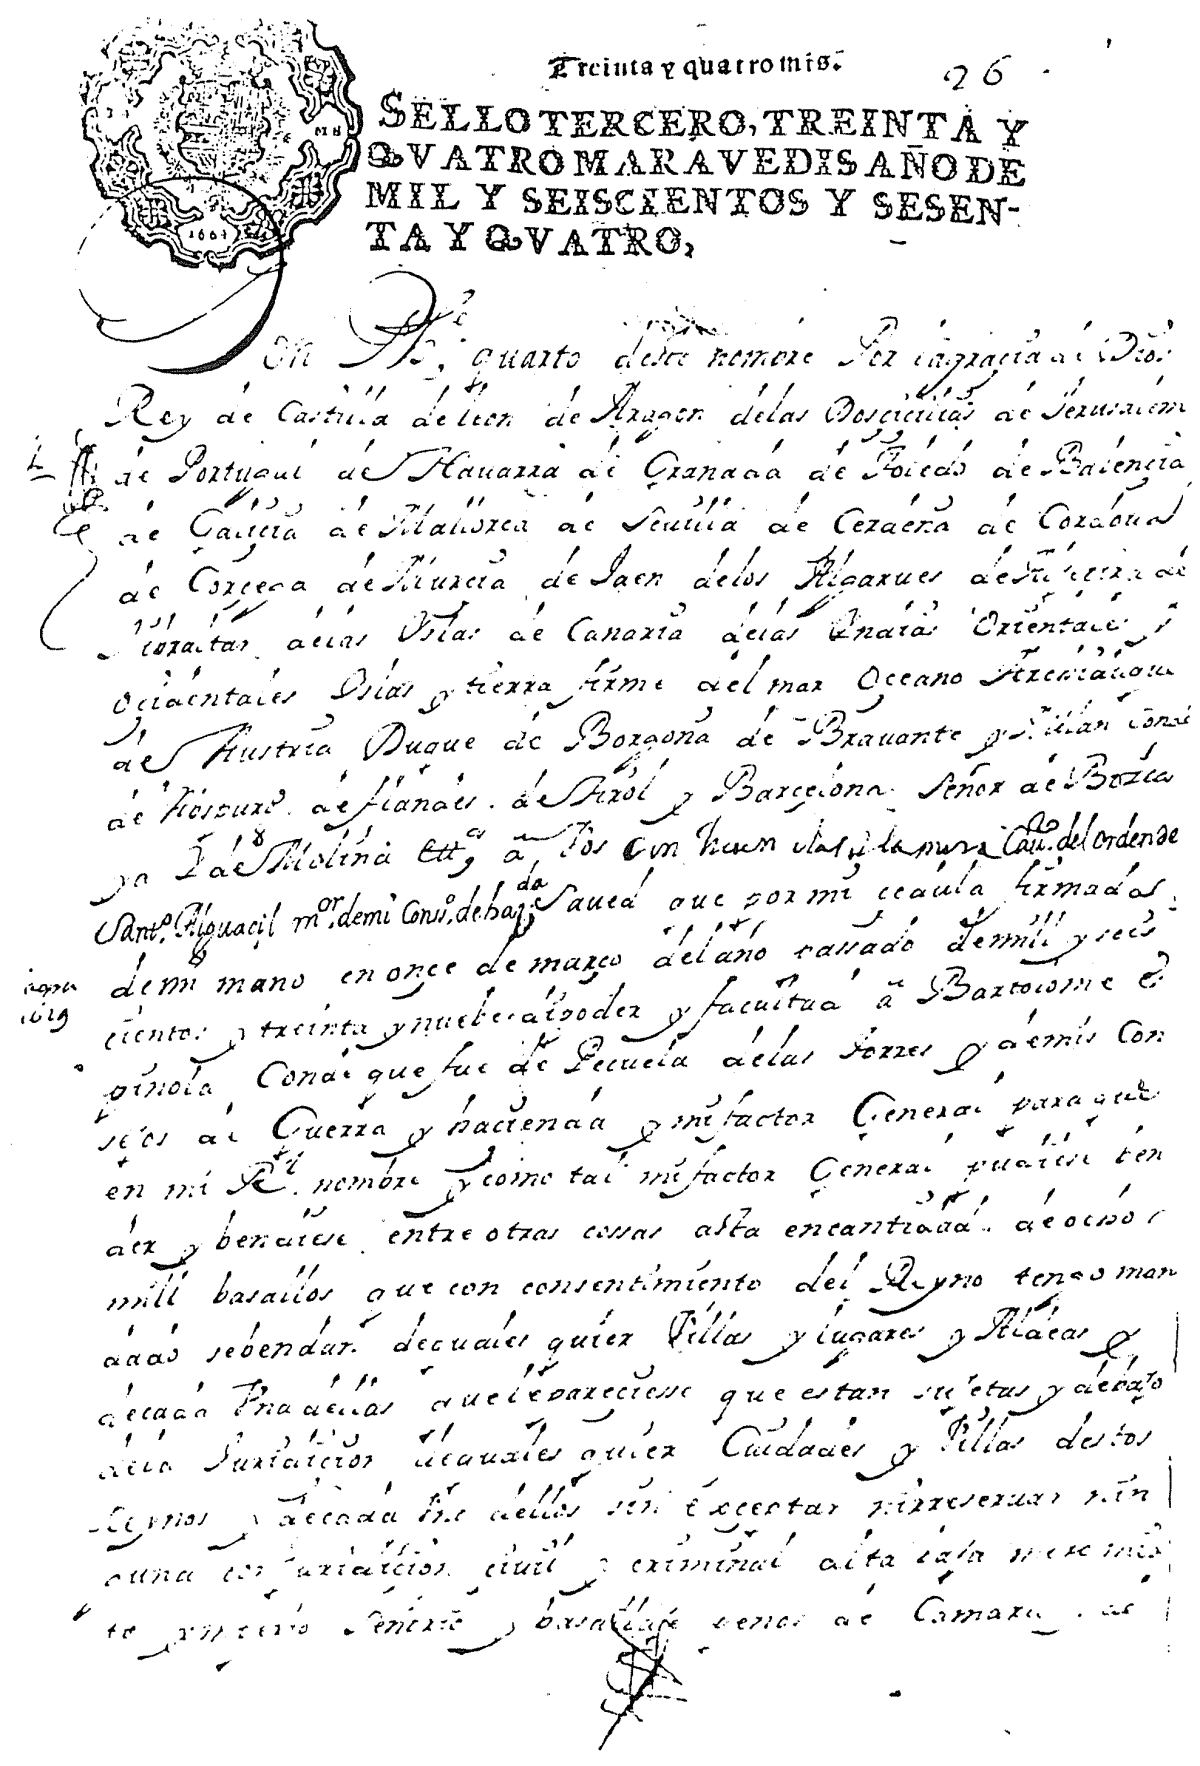 Treinta y quatro mrs.
26
SELLO TERCERO, TREINTA Y
QVATRO MARAVEDIS AÑO DE
MIL Y SEISCIENTOS Y SESEN-
TA Y QVATRO,
1664
Don Phe. quarto deste nombre Por lagracia de Dios
Rey de Castilla de leon de Aragon delas Doscicilias de Jerusalem
de Portugal de Nauarra de Granada de Toledo de Balencia
de Galicia de Mallorca de Seuilla de Cerdeña de Cordoua
de Corcega de Murcia de Jaen delos Algarues de
Gibraltar delas Yslas de Canaria delas Yndias Orientales y
ocidentales Yslas y tierra firme del mar Oceano Archiduque
de Austria Duque de Borgoña de Brauante y Milan Conde
de flandes de Tirol y Barcelona Señor de Bizcaia
ya y de Molina etta a Vos Cau.º del orden de
Sant.º Alguacil m.or de mi Cons.º de haz.da Saued que por mi cedula firmada
de mi mano en onçe de março del año passado de mill y seis
cientos y treinta y nuebe di poder y facultad a Bartolome es
pinola Conde que fue de Pecuela delas Torres y de mis Con
sejos de Guerra y hacienda y mi factor General para que
en mi Rl. nombre y como tal mi factor General pudiese ben
der y bendiese entre otras cossas asta encantidad de ocho
mill basallos que con consentimiento del Reyno tengo man
dado sebendan de cuales quier Villas y lugares y Aldeas y
de cada Vna dellas que le pareciesse que estan sujetas y debajo
dela Jurisdicion de cuales quier Ciudades y Villas destos
Reynos y de cada Vno dellos sin exceptar ni rreseruar nin
guna con jurisdicion ciuil y criminal alta baja mero mis
to ymperio señorio y basallaje penas de Camara de